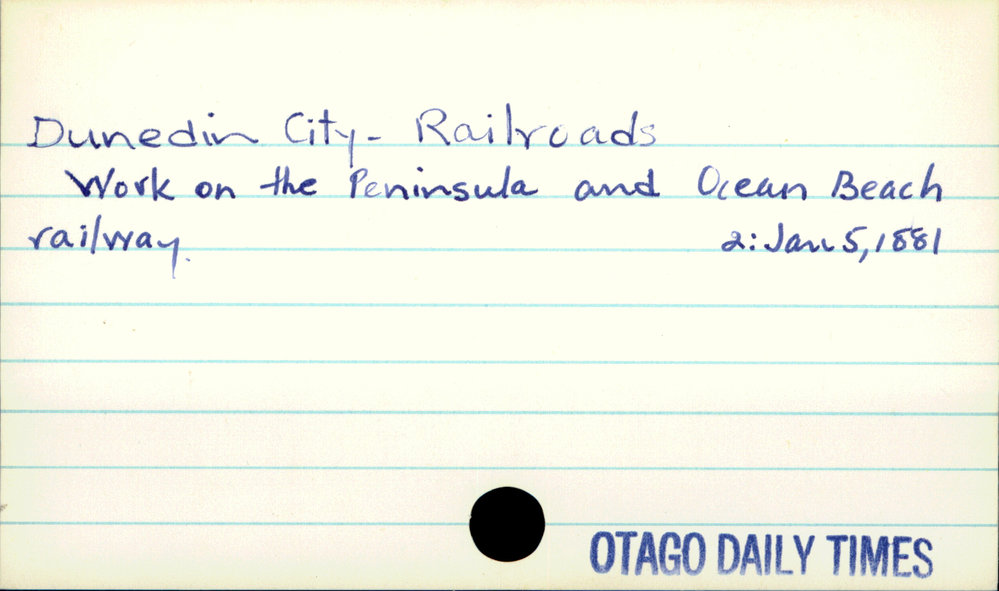 Dunedin City - Railroads
Work on the Peninsula and Ocean Beach
railway. 2: Jan 5, 1881
OTAGO DAILY TIMES